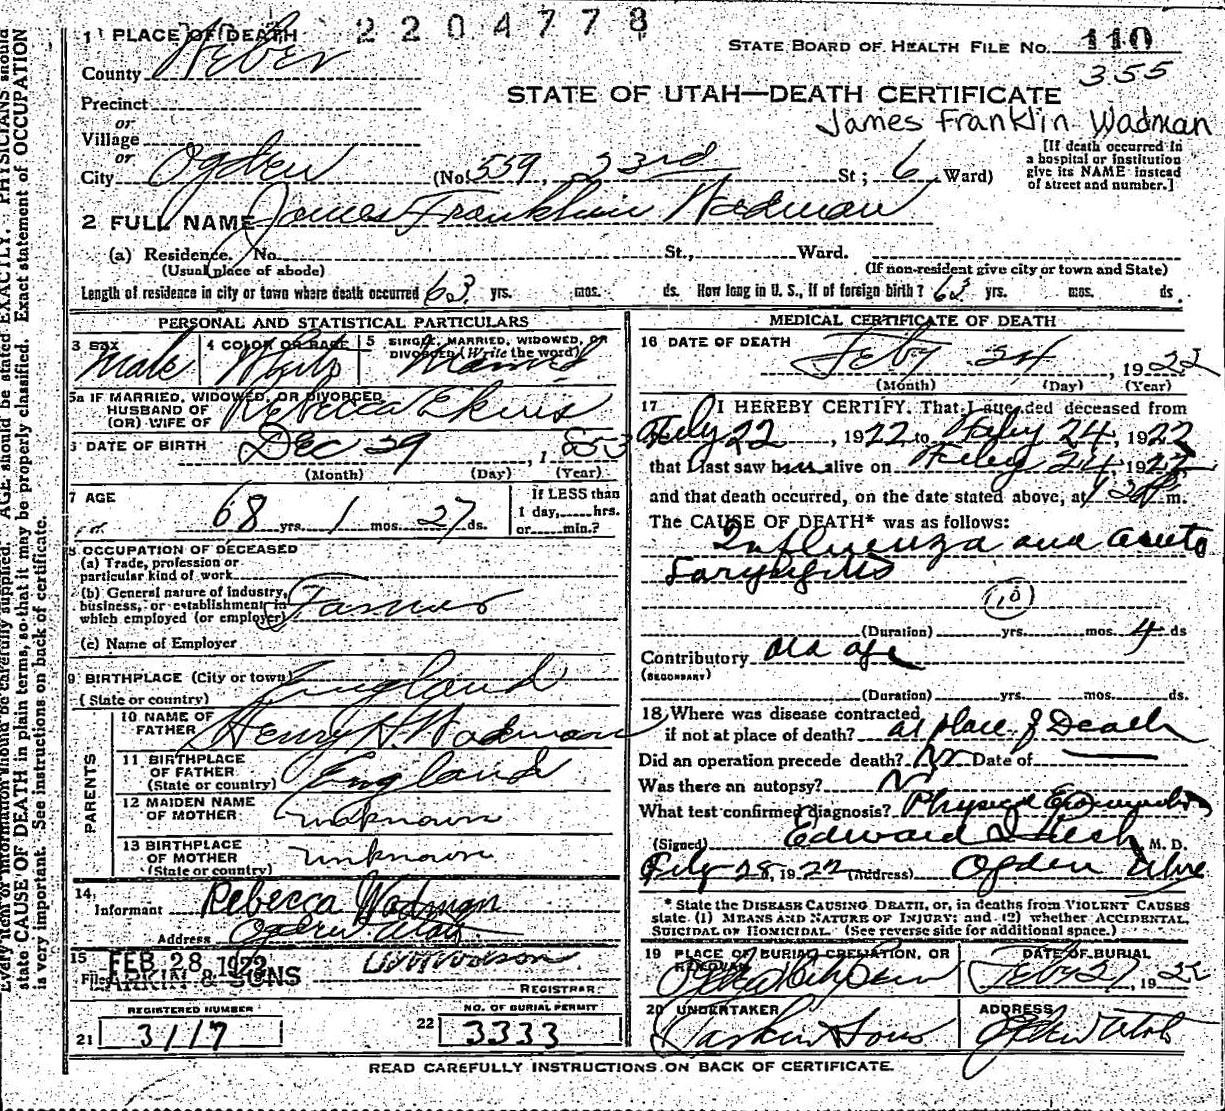 2204778
1 PLACE OF DEATH
STATE BOARD OF HEALTH FILE No. 110
County Weber
355
STATE OF UTAH—DEATH CERTIFICATE
Precinct
James Franklin Wadman
or
Village
or
City Ogden (No. 559, 23rd St; 6 Ward)
[If death occurred in
a hospital or institution
give its NAME instead
of street and number.]
2 FULL NAME James Franklin Wadman
(a) Residence. No. St., Ward.
(Usual place of abode) (If non-resident give city or town and State)
Length of residence in city or town where death occurred 63 yrs. mos. ds. How long in U. S., if of foreign birth? 63 yrs. mos. ds.
PERSONAL AND STATISTICAL PARTICULARS
3 SEX Male
4 COLOR OR RACE White
5 SINGLE, MARRIED, WIDOWED, OR
DIVORCED (Write the word) Married
5a IF MARRIED, WIDOWED, OR DIVORCED
HUSBAND OF
(OR) WIFE OF Rebecca Ekins
6 DATE OF BIRTH Dec 29, 1853
(Month) (Day) (Year)
7 AGE 68 yrs. 1 mos. 27 ds.
If LESS than
1 day, hrs.
or min.?
8 OCCUPATION OF DECEASED
(a) Trade, profession or
particular kind of work
(b) General nature of industry,
business, or establishment in
which employed (or employer) Farmer
(c) Name of Employer
9 BIRTHPLACE (City or town)
(State or country) England
PARENTS
10 NAME OF
FATHER Henry H. Wadman
11 BIRTHPLACE
OF FATHER
(State or country) England
12 MAIDEN NAME
OF MOTHER unknown
13 BIRTHPLACE
OF MOTHER
(State or country) unknown
14
Informant Rebecca Wadman
Address Ogden Utah
15 FEB 28 1922
Filed LARKIN & SONS
REGISTRAR.
REGISTERED NUMBER
21 3117
NO. OF BURIAL PERMIT
22 3333
MEDICAL CERTIFICATE OF DEATH
16 DATE OF DEATH Feby 24, 1922
(Month) (Day) (Year)
17 I HEREBY CERTIFY, That I attended deceased from
Feby 22, 1922 to Feby 24, 1922
that I last saw him alive on Feby 24, 1922
and that death occurred, on the date stated above, at m.
The CAUSE OF DEATH* was as follows:
Influenza and acute
Laryngitis
10
(Duration) yrs. mos. 4 ds
Contributory old age
(SECONDARY)
(Duration) yrs. mos. ds.
18 Where was disease contracted
if not at place of death? at place of Death
Did an operation precede death? No Date of
Was there an autopsy? No
What test confirmed diagnosis? Physical Examination
(Signed) Edward I Rich, M. D.
Feby 28, 1922 (Address) Ogden Utah
* State the DISEASE CAUSING DEATH, or, in deaths from VIOLENT CAUSES
state (1) MEANS AND NATURE OF INJURY; and (2) whether ACCIDENTAL,
SUICIDAL OR HOMICIDAL. (See reverse side for additional space.)
19 PLACE OF BURIAL, CREMATION, OR
REMOVAL Ogden
DATE OF BURIAL
Feby 27, 1922
20 UNDERTAKER
Larkin & Sons
ADDRESS
Ogden Utah
READ CAREFULLY INSTRUCTIONS ON BACK OF CERTIFICATE.
Every item of information should be carefully supplied. AGE should be stated EXACTLY. PHYSICIANS should
state CAUSE OF DEATH in plain terms, so that it may be properly classified. Exact statement of OCCUPATION
is very important. See instructions on back of certificate.